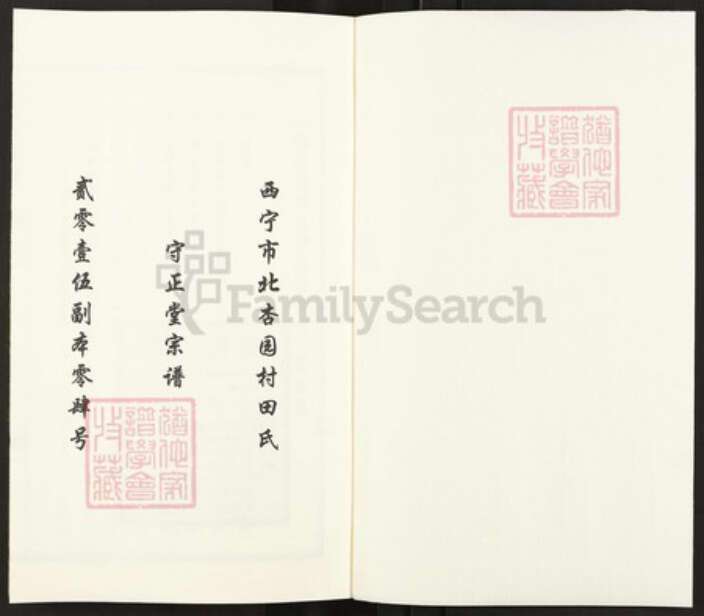 西宁市北杏园村田氏
守正堂宗谱
贰零壹伍副本零肆号
猶他家
譜學會
收藏
猶他家
譜學會
收藏
FamilySearch